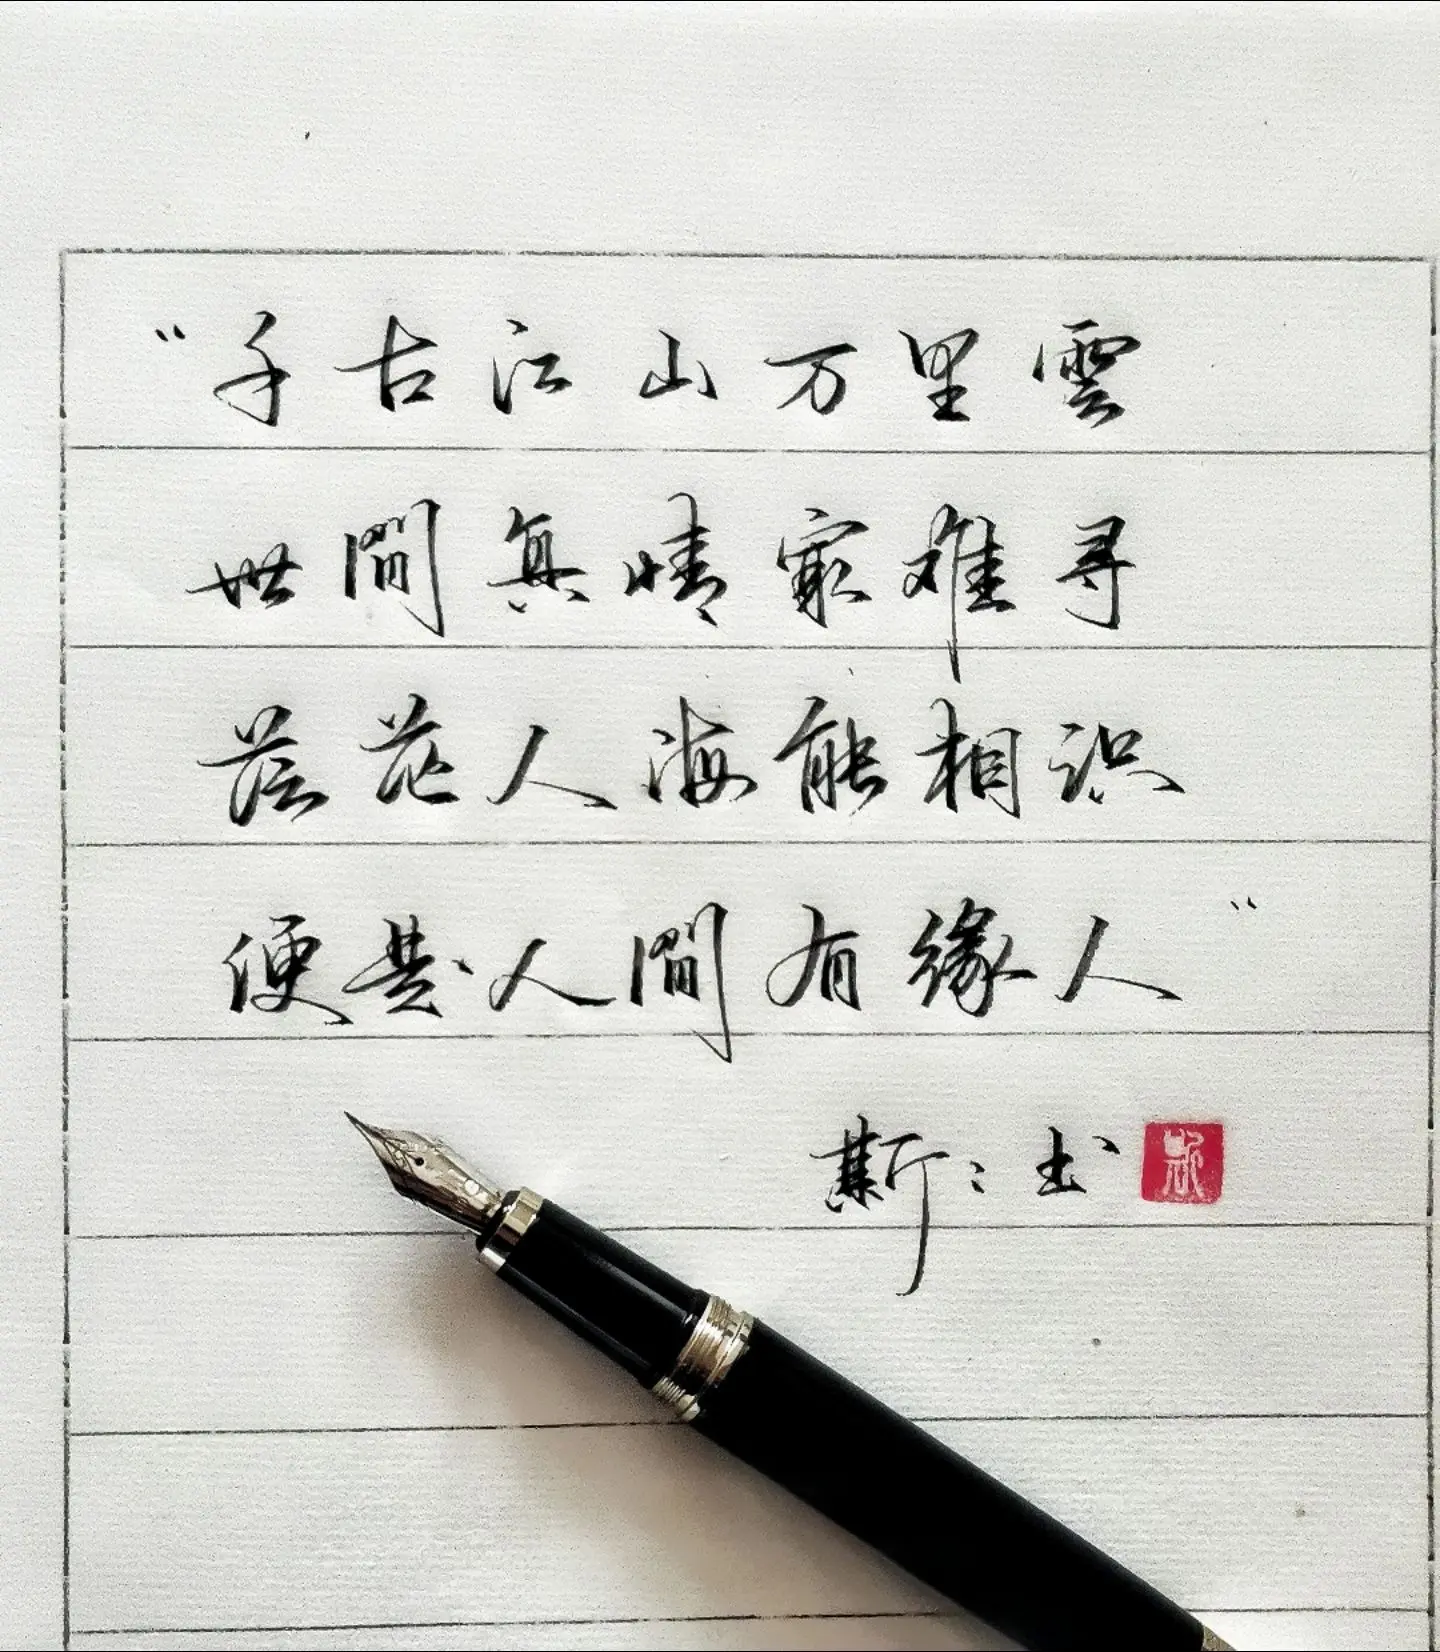 “千古江山万里雲
世間真情最難尋
茫茫人海能相识
便是人間有緣人”
斯：书